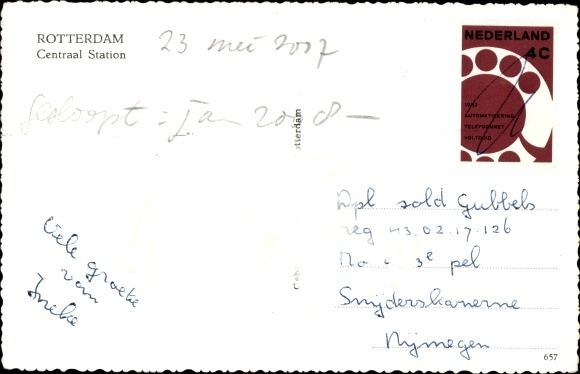 ROTTERDAM
Centraal Station
23 mei 2007
gesloopt: Jan 2008 —
NEDERLAND
4C
1962
AUTOMATISERING
TELEFOONNET
VOLTOOID
tterdam
Dpl sold Gubbels
reg 43.02.17.126
3e pel
Snijderskazerne
Nijmegen
Vele groeten
van
Ineke
657